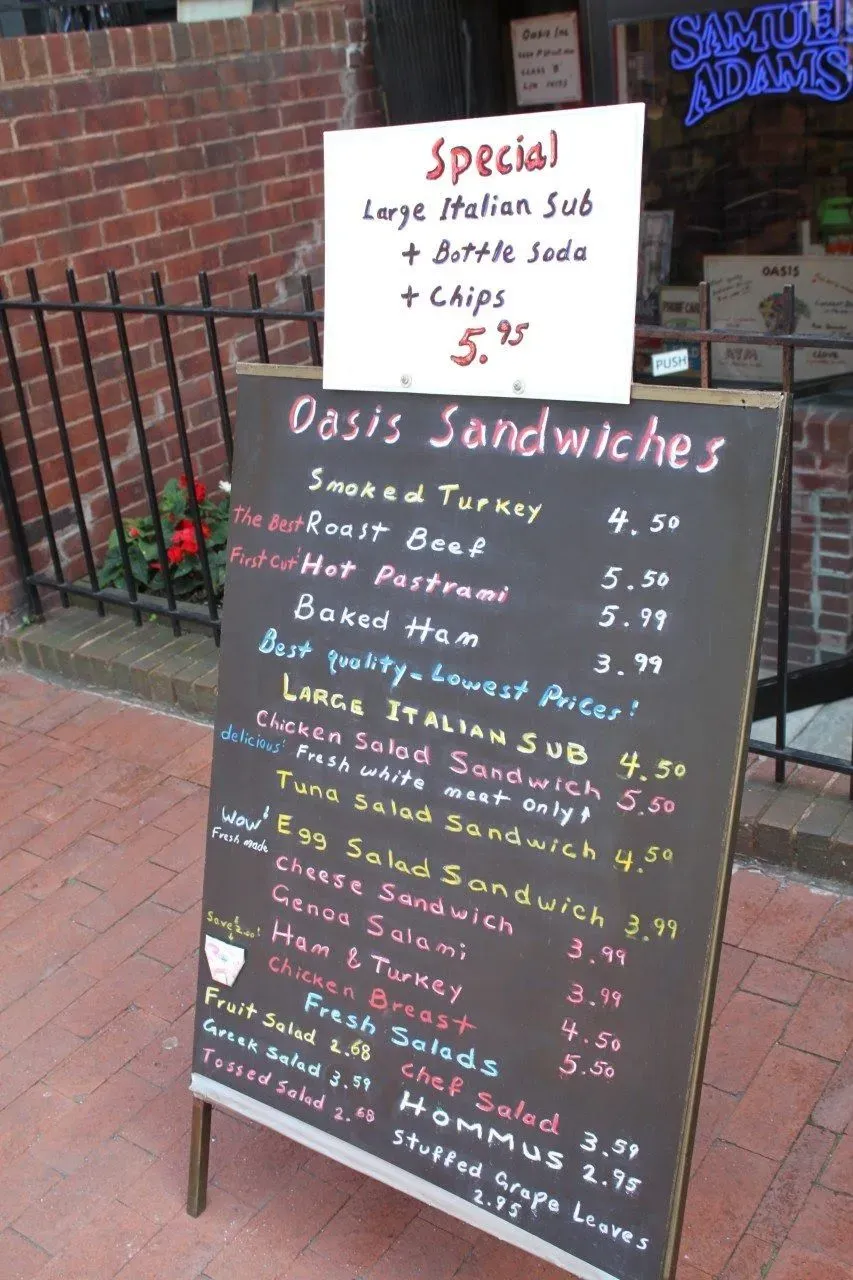 SAMUEL ADAMS
Oasis Inc
Special
Large Italian Sub
+ Bottle Soda
+ Chips
5.95
OASIS
PUSH
Oasis Sandwiches
Smoked Turkey 4.50
The Best Roast Beef 5.50
First Cut! Hot Pastrami 5.99
Baked Ham 3.99
Best quality - Lowest Prices!
LARGE ITALIAN SUB 4.50
Chicken Salad Sandwich 5.50
delicious! Fresh white meat only↑
Tuna Salad Sandwich 4.50
Wow!
Fresh made
Egg Salad Sandwich 3.99
Cheese Sandwich 3.99
Genoa Salami 3.99
Ham & Turkey 4.50
Chicken Breast 5.50
Save
Fresh Salads
Fruit Salad 2.68
Greek Salad 3.59
Tossed Salad 2.68
Chef Salad 3.59
HOMMUS 2.95
Stuffed Grape Leaves
2.95